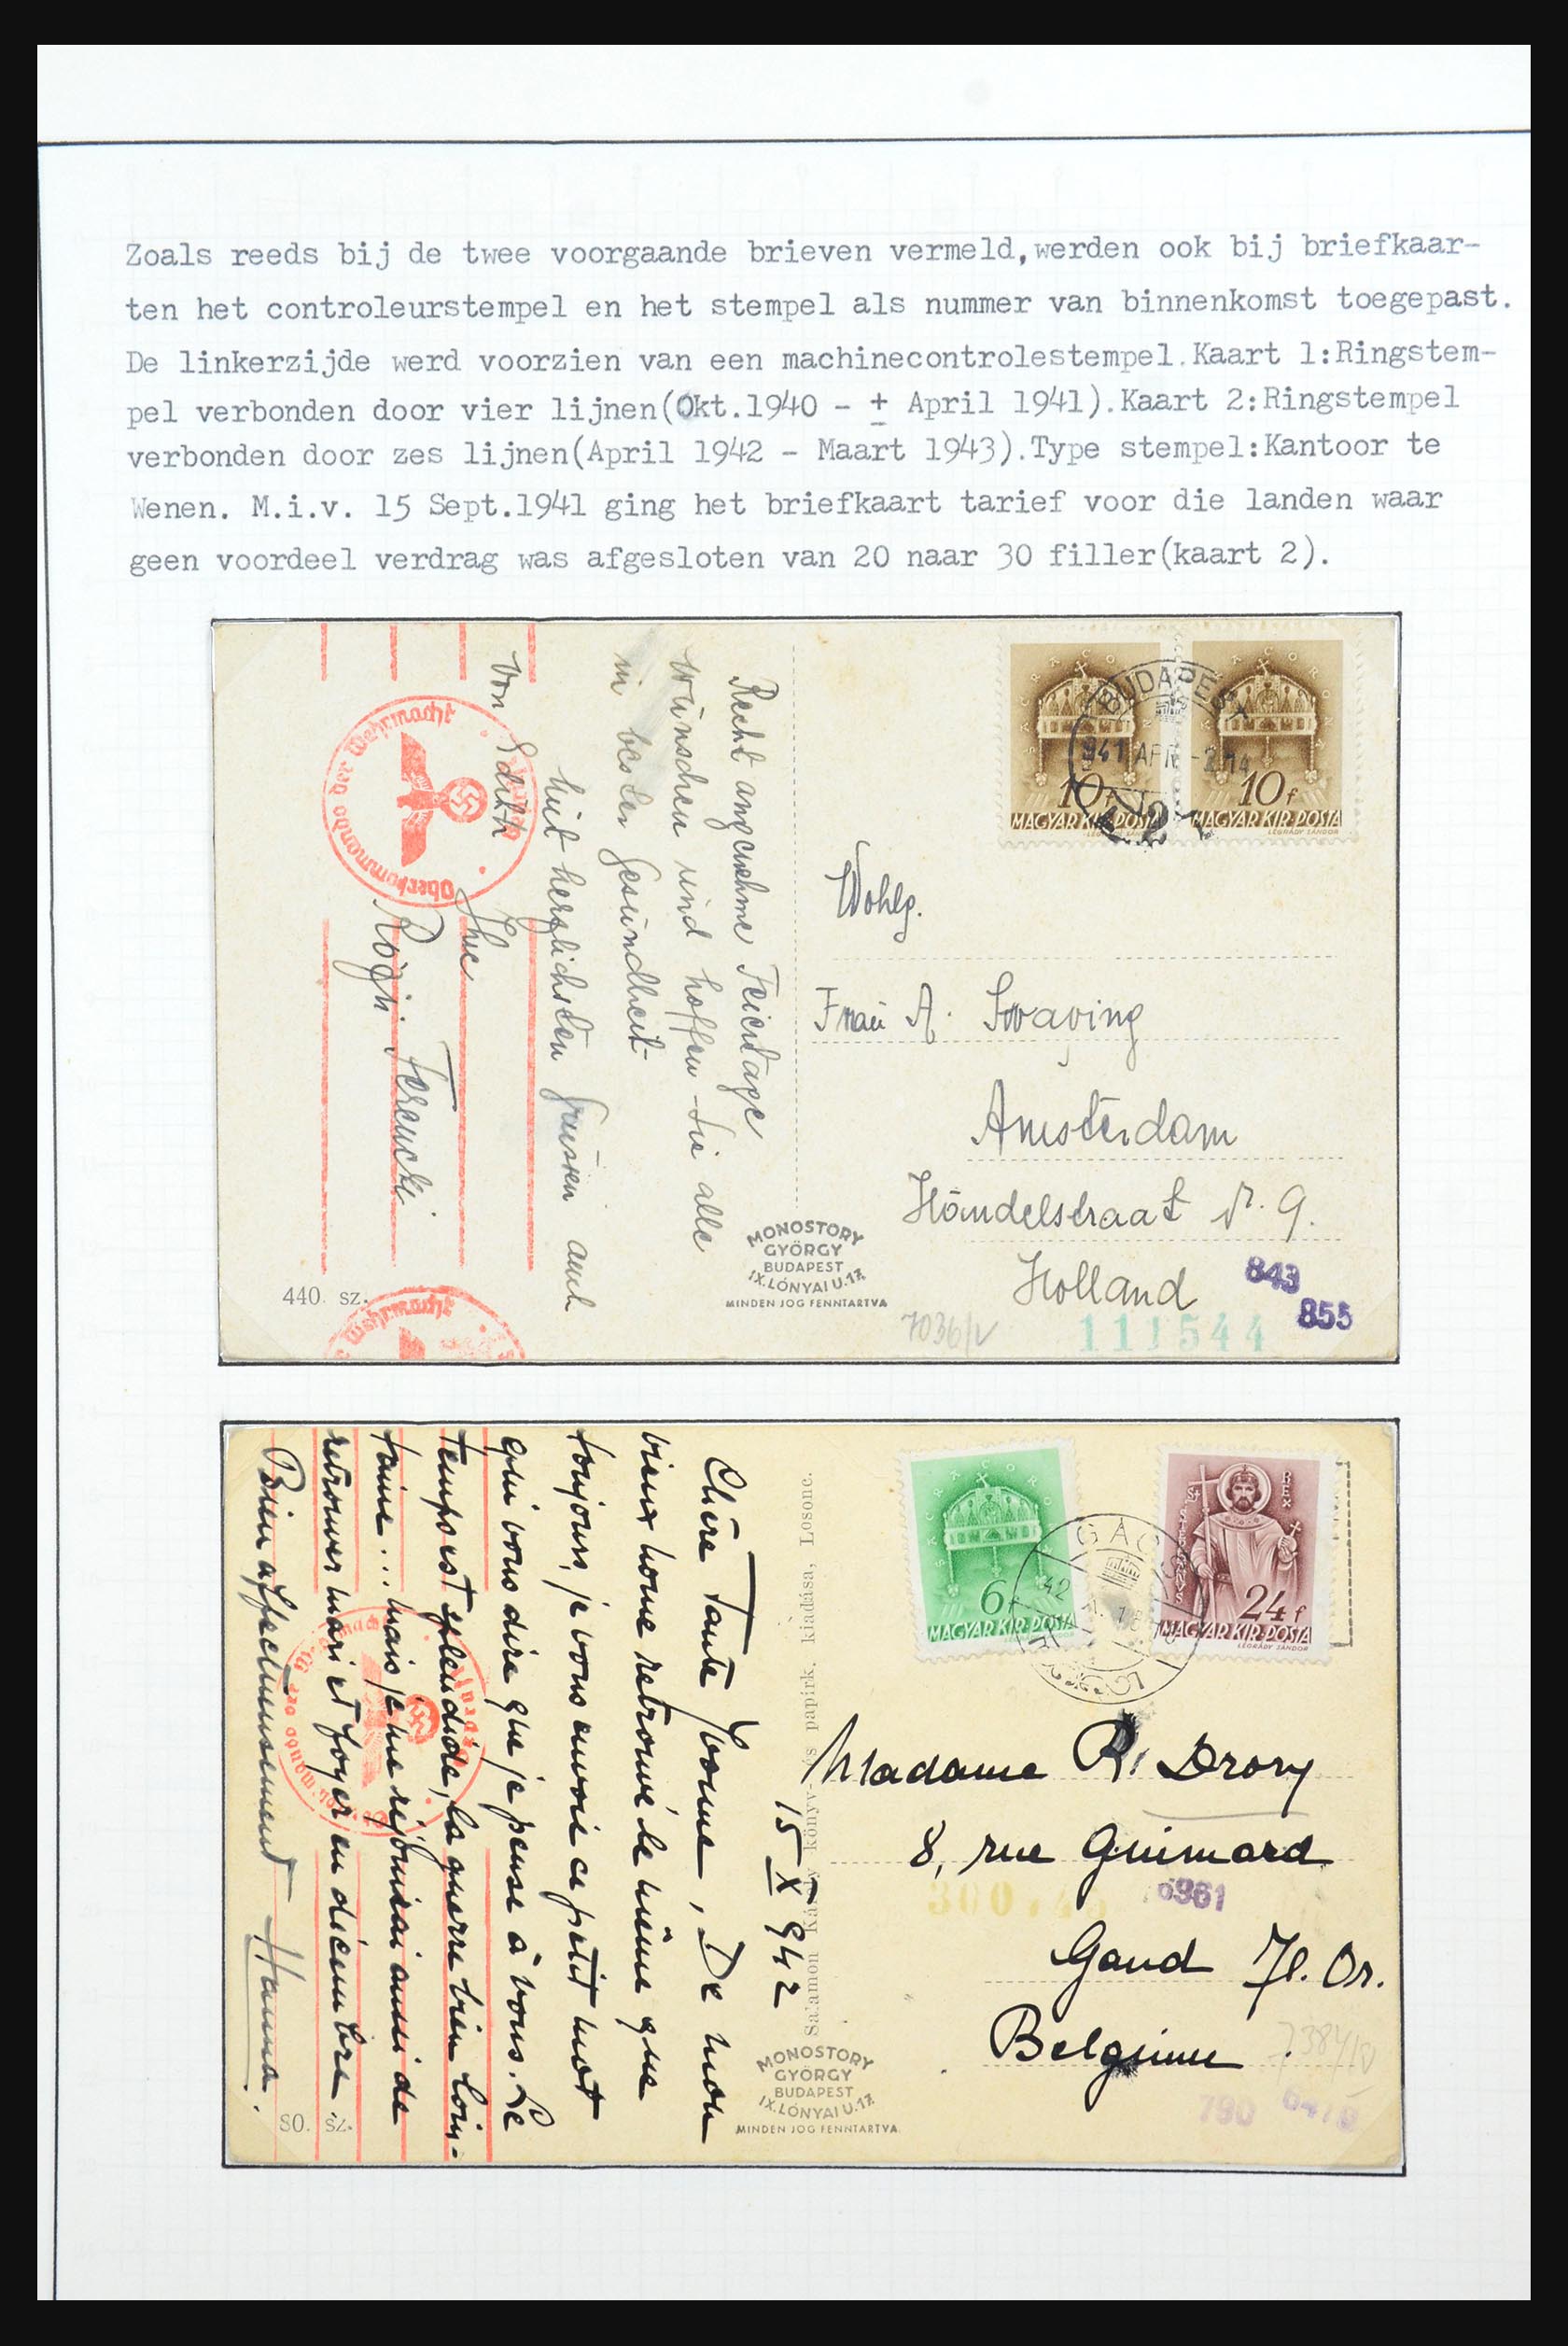 Zoals reeds bij de twee voorgaande brieven vermeld,werden ook bij briefkaar-
ten het controleurstempel en het stempel als nummer van binnenkomst toegepast.
De linkerzijde werd voorzien van een machinecontrolestempel.Kaart 1:Ringstem-
pel verbonden door vier lijnen(Okt.1940 - ± April 1941).Kaart 2:Ringstempel
verbonden door zes lijnen(April 1942 - Maart 1943).Type stempel:Kantoor te
Wenen. M.i.v. 15 Sept.1941 ging het briefkaart tarief voor die landen waar
geen voordeel verdrag was afgesloten van 20 naar 30 filler(kaart 2).
Recht angenehme Feiertage
wünschen und hoffen Sie alle
in bester Gesundheit
mit herzlichsten Grüssen auch
von Edith
Ihre
Ferencki
Oberkommando der Wehrmacht
440. sz.
Wehrmacht
SACRA CORONA
10f
MAGYAR KIR. POSTA
LÉGRÁDY SÁNDOR
SACRA CORONA
10f
MAGYAR KIR. POSTA
LÉGRÁDY SÁNDOR
BUDAPEST
941 APR -2 14
Wohlg.
Frau A. Swaving
Amsterdam
Händelstraat Nr. 9.
Holland
843
855
7036/V
111544
MONOSTORY
GYÖRGY
BUDAPEST
IX. LÓNYAI U. 17.
MINDEN JOG FENNTARTVA
15 X 942
Chère Tante Yvonne, De mon
vieux home retrouvé le même que
toujours, je vous envoie ce petit mot
qui vous dire que je pense à vous. Le
temps est splendide, la guerre bien loin-
taine ... mais je me réjouirai aussi de
retrouver mari et foyer en décembre.
Bien affectueusement Hanna.
80. sz.
Salamon Károly könyv- és papirk. kiadása, Losonc.
SACRA CORONA
6f
MAGYAR KIR. POSTA
REX
24f
MAGYAR KIR. POSTA
LÉGRÁDY SÁNDOR
GÁCS
42
Madame R. Drory
8, rue Guimard
6961
Gand Fl. Or.
Belgique
790
MONOSTORY
GYÖRGY
BUDAPEST
IX. LÓNYAI U. 17.
MINDEN JOG FENNTARTVA